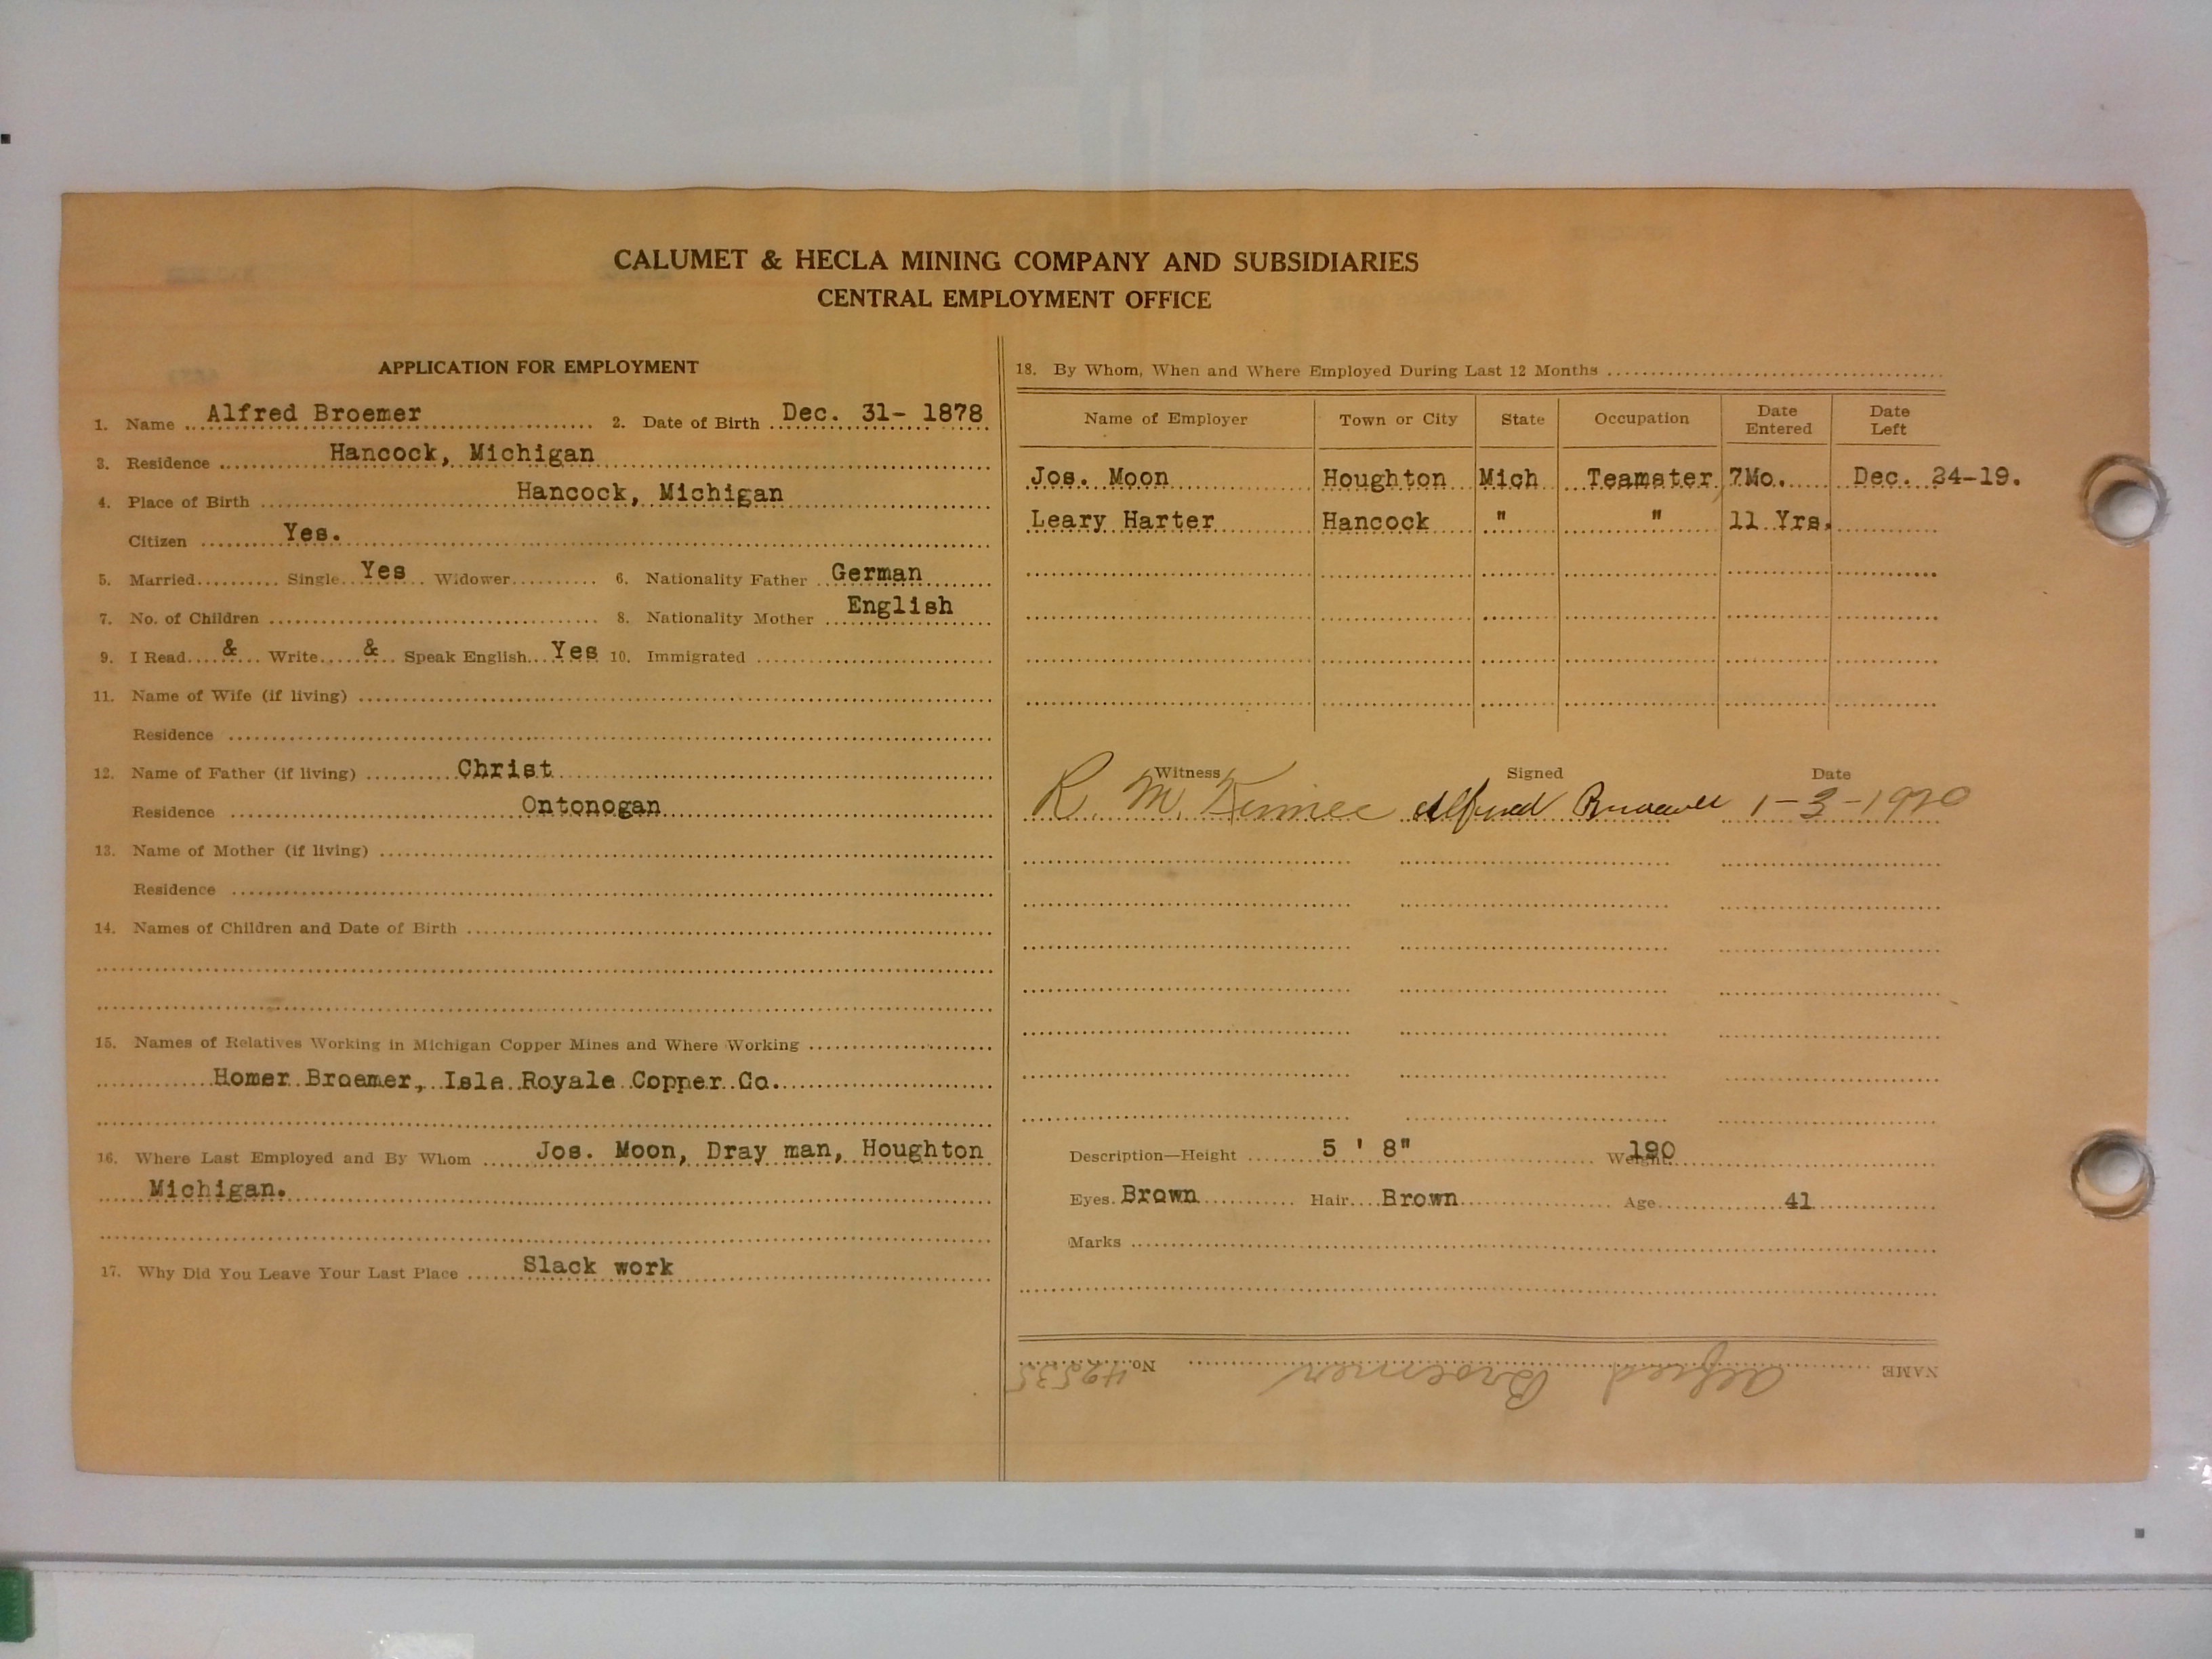 CALUMET & HECLA MINING COMPANY AND SUBSIDIARIES
CENTRAL EMPLOYMENT OFFICE
APPLICATION FOR EMPLOYMENT
1. Name Alfred Broemer 2. Date of Birth Dec. 31- 1878
3. Residence Hancock, Michigan
4. Place of Birth Hancock, Michigan
Citizen Yes.
5. Married Single Yes Widower 6. Nationality Father German
7. No. of Children 8. Nationality Mother English
9. I Read & Write & Speak English Yes 10. Immigrated
11. Name of Wife (if living)
Residence
12. Name of Father (if living) Christ
Residence Ontonogan
13. Name of Mother (if living)
Residence
14. Names of Children and Date of Birth
15. Names of Relatives Working in Michigan Copper Mines and Where Working
Homer Broemer, Isle Royale Copper Co.
16. Where Last Employed and By Whom Jos. Moon, Dray man, Houghton
Michigan.
17. Why Did You Leave Your Last Place Slack work
18. By Whom, When and Where Employed During Last 12 Months
Name of Employer Town or City State Occupation Date Entered Date Left
Jos. Moon Houghton Mich Teamster 7Mo. Dec. 24-19.
Leary Harter Hancock " " 11 Yrs.
Witness Signed Date
R. M. Alfred 1-3-1920
Description—Height 5 ' 8" Weight 190
Eyes Brown Hair Brown Age 41
Marks
NAME Alfred Broemer No. 42535